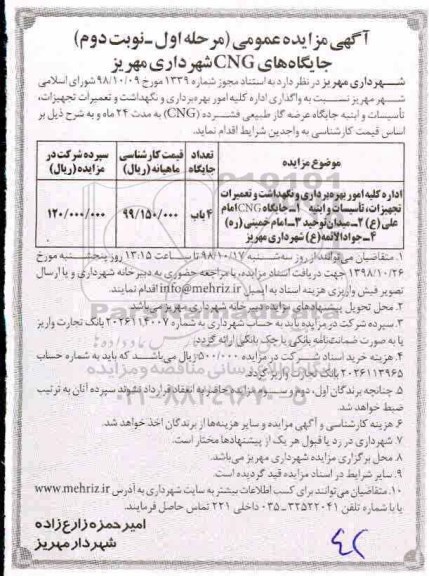 آگهی مزایده عمومی (مرحله اول - نوبت دوم)
جایگاه‌های CNG شهرداری مهریز
شهرداری مهریز در نظر دارد به استناد مجوز شماره ۱۳۳۹ مورخ ۹۸/۱۰/۰۹ شورای اسلامی
شهر مهریز نسبت به واگذاری اداره کلیه امور بهره‌برداری و نگهداشت و تعمیرات تجهیزات،
تأسیسات و ابنیه جایگاه عرضه گاز طبیعی فشرده (CNG) به مدت ۲۴ ماه و به شرح ذیل بر
اساس قیمت کارشناسی به واجدین شرایط اقدام نماید.
موضوع مزایده | تعداد جایگاه | قیمت کارشناسی ماهیانه (ریال) | سپرده شرکت در مزایده (ریال)
اداره کلیه امور بهره‌برداری و نگهداشت و تعمیرات
تجهیزات، تأسیسات و ابنیه ۱- جایگاه CNG امام
علی (ع) ۲- میدان توحید ۳- امام خمینی (ره)
۴- جوادالائمه (ع) شهرداری مهریز
۴ باب | ۹۹/۱۵۰/۰۰۰ | ۱۲۰/۰۰۰/۰۰۰
۱. متقاضیان می‌توانند از روز سه‌شنبه ۹۸/۱۰/۱۷ تا ساعت ۱۳:۱۵ روز پنجشنبه مورخ
۱۳۹۸/۱۰/۲۶ جهت دریافت اسناد مزایده، با مراجعه حضوری به دبیرخانه شهرداری و یا ارسال
تصویر فیش واریزی هزینه اسناد به ایمیل info@mehriz.ir اقدام نمایند.
۲. محل تحویل پیشنهادهای مزایده دبیرخانه شهرداری مهریز می‌باشد.
۳. سپرده شرکت در مزایده باید به حساب شهرداری به شماره ۲۰۲۶۱۱۴۰۰۷ بانک تجارت واریز
یا به صورت ضمانت‌نامه بانکی یا چک بانکی ارائه گردد.
۴. هزینه خرید اسناد شرکت در مزایده ۵۰۰/۰۰۰ ریال می‌باشد که باید به شماره حساب
۲۰۲۶۱۱۳۹۶۵ بانک تجارت واریز گردد.
۵. چنانچه برندگان اول، دوم و سوم مزایده حاضر به انعقاد قرارداد نشوند سپرده آنان به ترتیب
ضبط خواهد شد.
۶. هزینه کارشناسی و آگهی مزایده و سایر هزینه‌ها از برندگان اخذ خواهد شد.
۷. شهرداری در رد یا قبول هر یک از پیشنهادها مختار است.
۸. محل برگزاری مزایده شهرداری مهریز می‌باشد.
۹. سایر شرایط در اسناد مزایده قید گردیده است.
۱۰. متقاضیان می‌توانند برای کسب اطلاعات بیشتر به سایت شهرداری به آدرس www.mehriz.ir
یا با شماره تلفن ۳۲۵۲۲۰۴۱-۰۳۵ داخلی ۲۲۱ تماس حاصل فرمایند.
امیر حمزه زارع زاده
شهردار مهریز